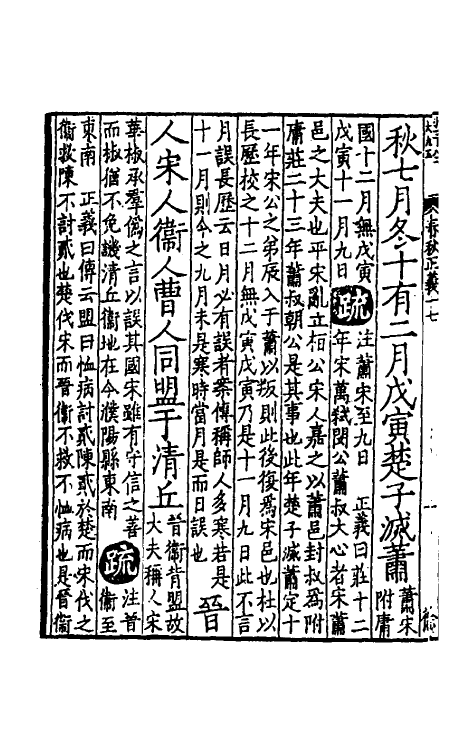 春秋正義十七
秋七月冬十有二月戊寅楚子滅蕭
蕭宋
附庸
國十二月無戊寅
戊寅十一月九日
疏
注蕭宋至九日 正義曰莊十二
年宋萬弑閔公蕭叔大心者宋蕭
邑之大夫也平宋亂立桓公宋人嘉之以蕭邑封叔爲附
庸莊二十三年蕭叔朝公是其事也此年楚子滅蕭定十
一年宋公之弟辰入于蕭以叛則此後復爲宋邑也杜以
長歷校之十二月無戊寅戊寅乃是十一月九日此不言
月誤長歷云日月必有誤者案傳稱師人多寒若是
十一月則今之九月未是寒時當月是而日誤也
晉
人宋人衞人曹人同盟于清丘
晉衞背盟故
大夫稱人宋
華椒承羣僞之言以誤其國宋雖有守信之善
而椒猶不免譏清丘衞地在今濮陽縣東南
疏
注晉
衞至
東南 正義曰傳云盟曰恤病討貳陳貳於楚而宋伐之
衞救陳不討貳也楚伐宋而晉衞不救不恤病也是晉衞